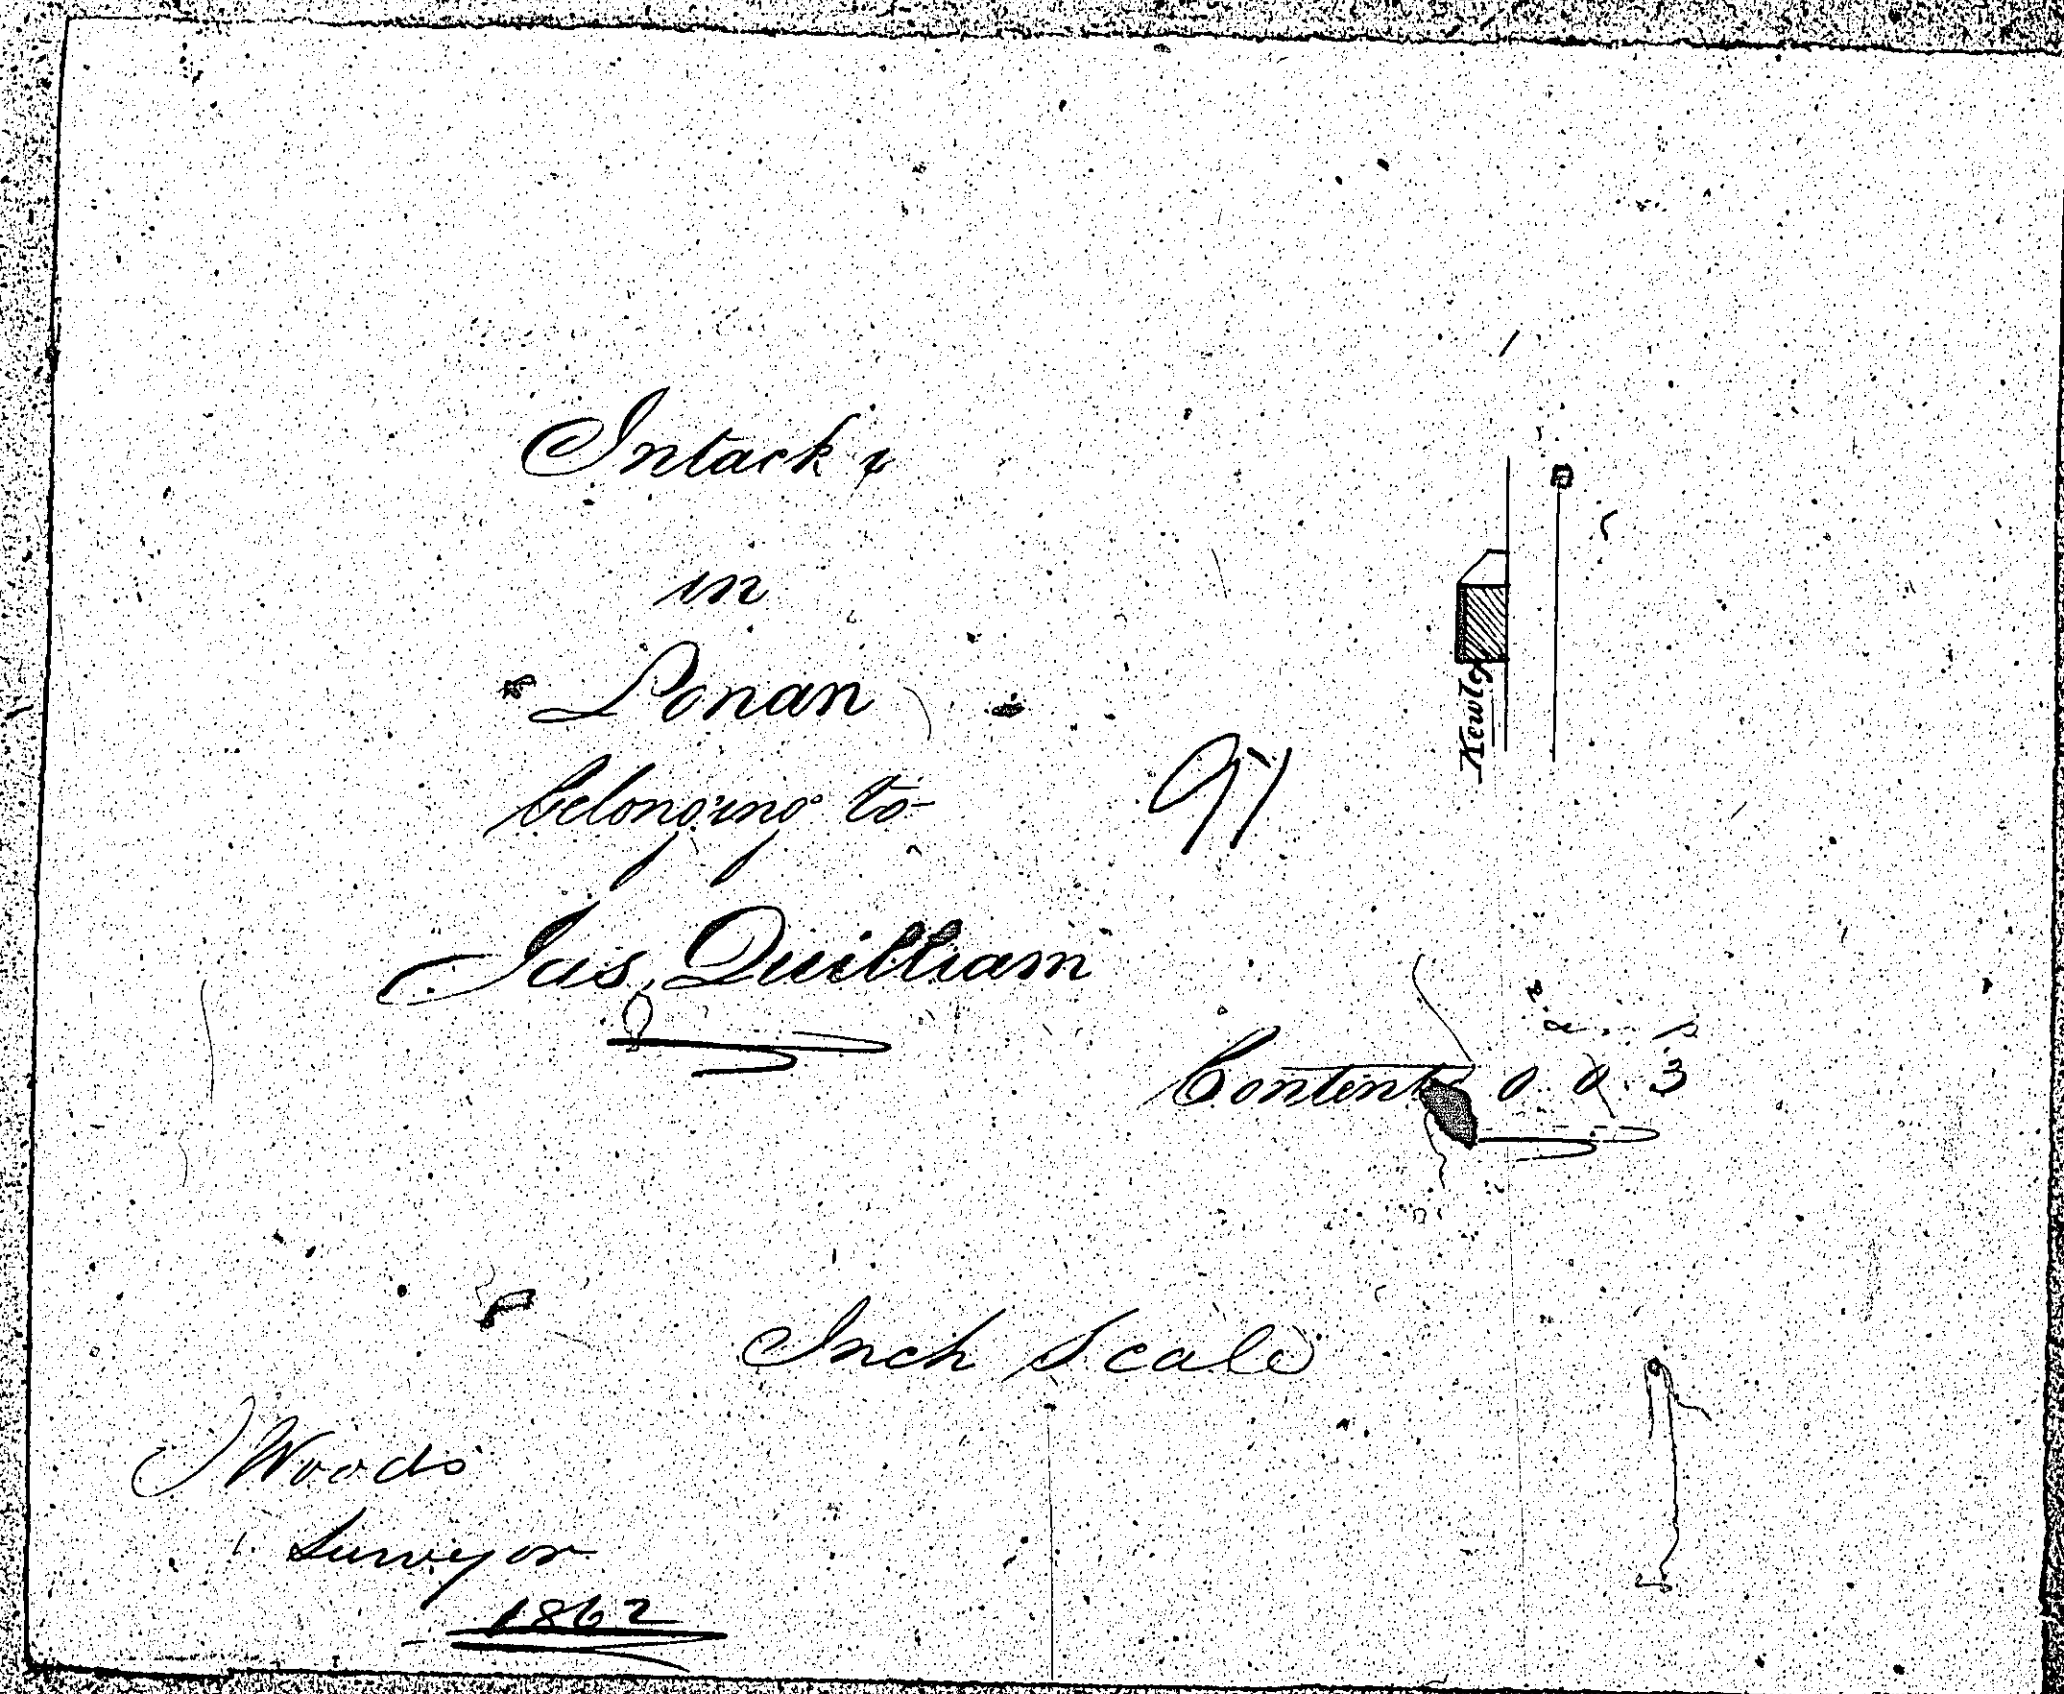 Intack &
in
Lonan
belonging to
97
Jas, Quilliam
Kewley
a. r. p
Contents 0 0. 3
Inch Scale
J Woods
Surveyor
1862